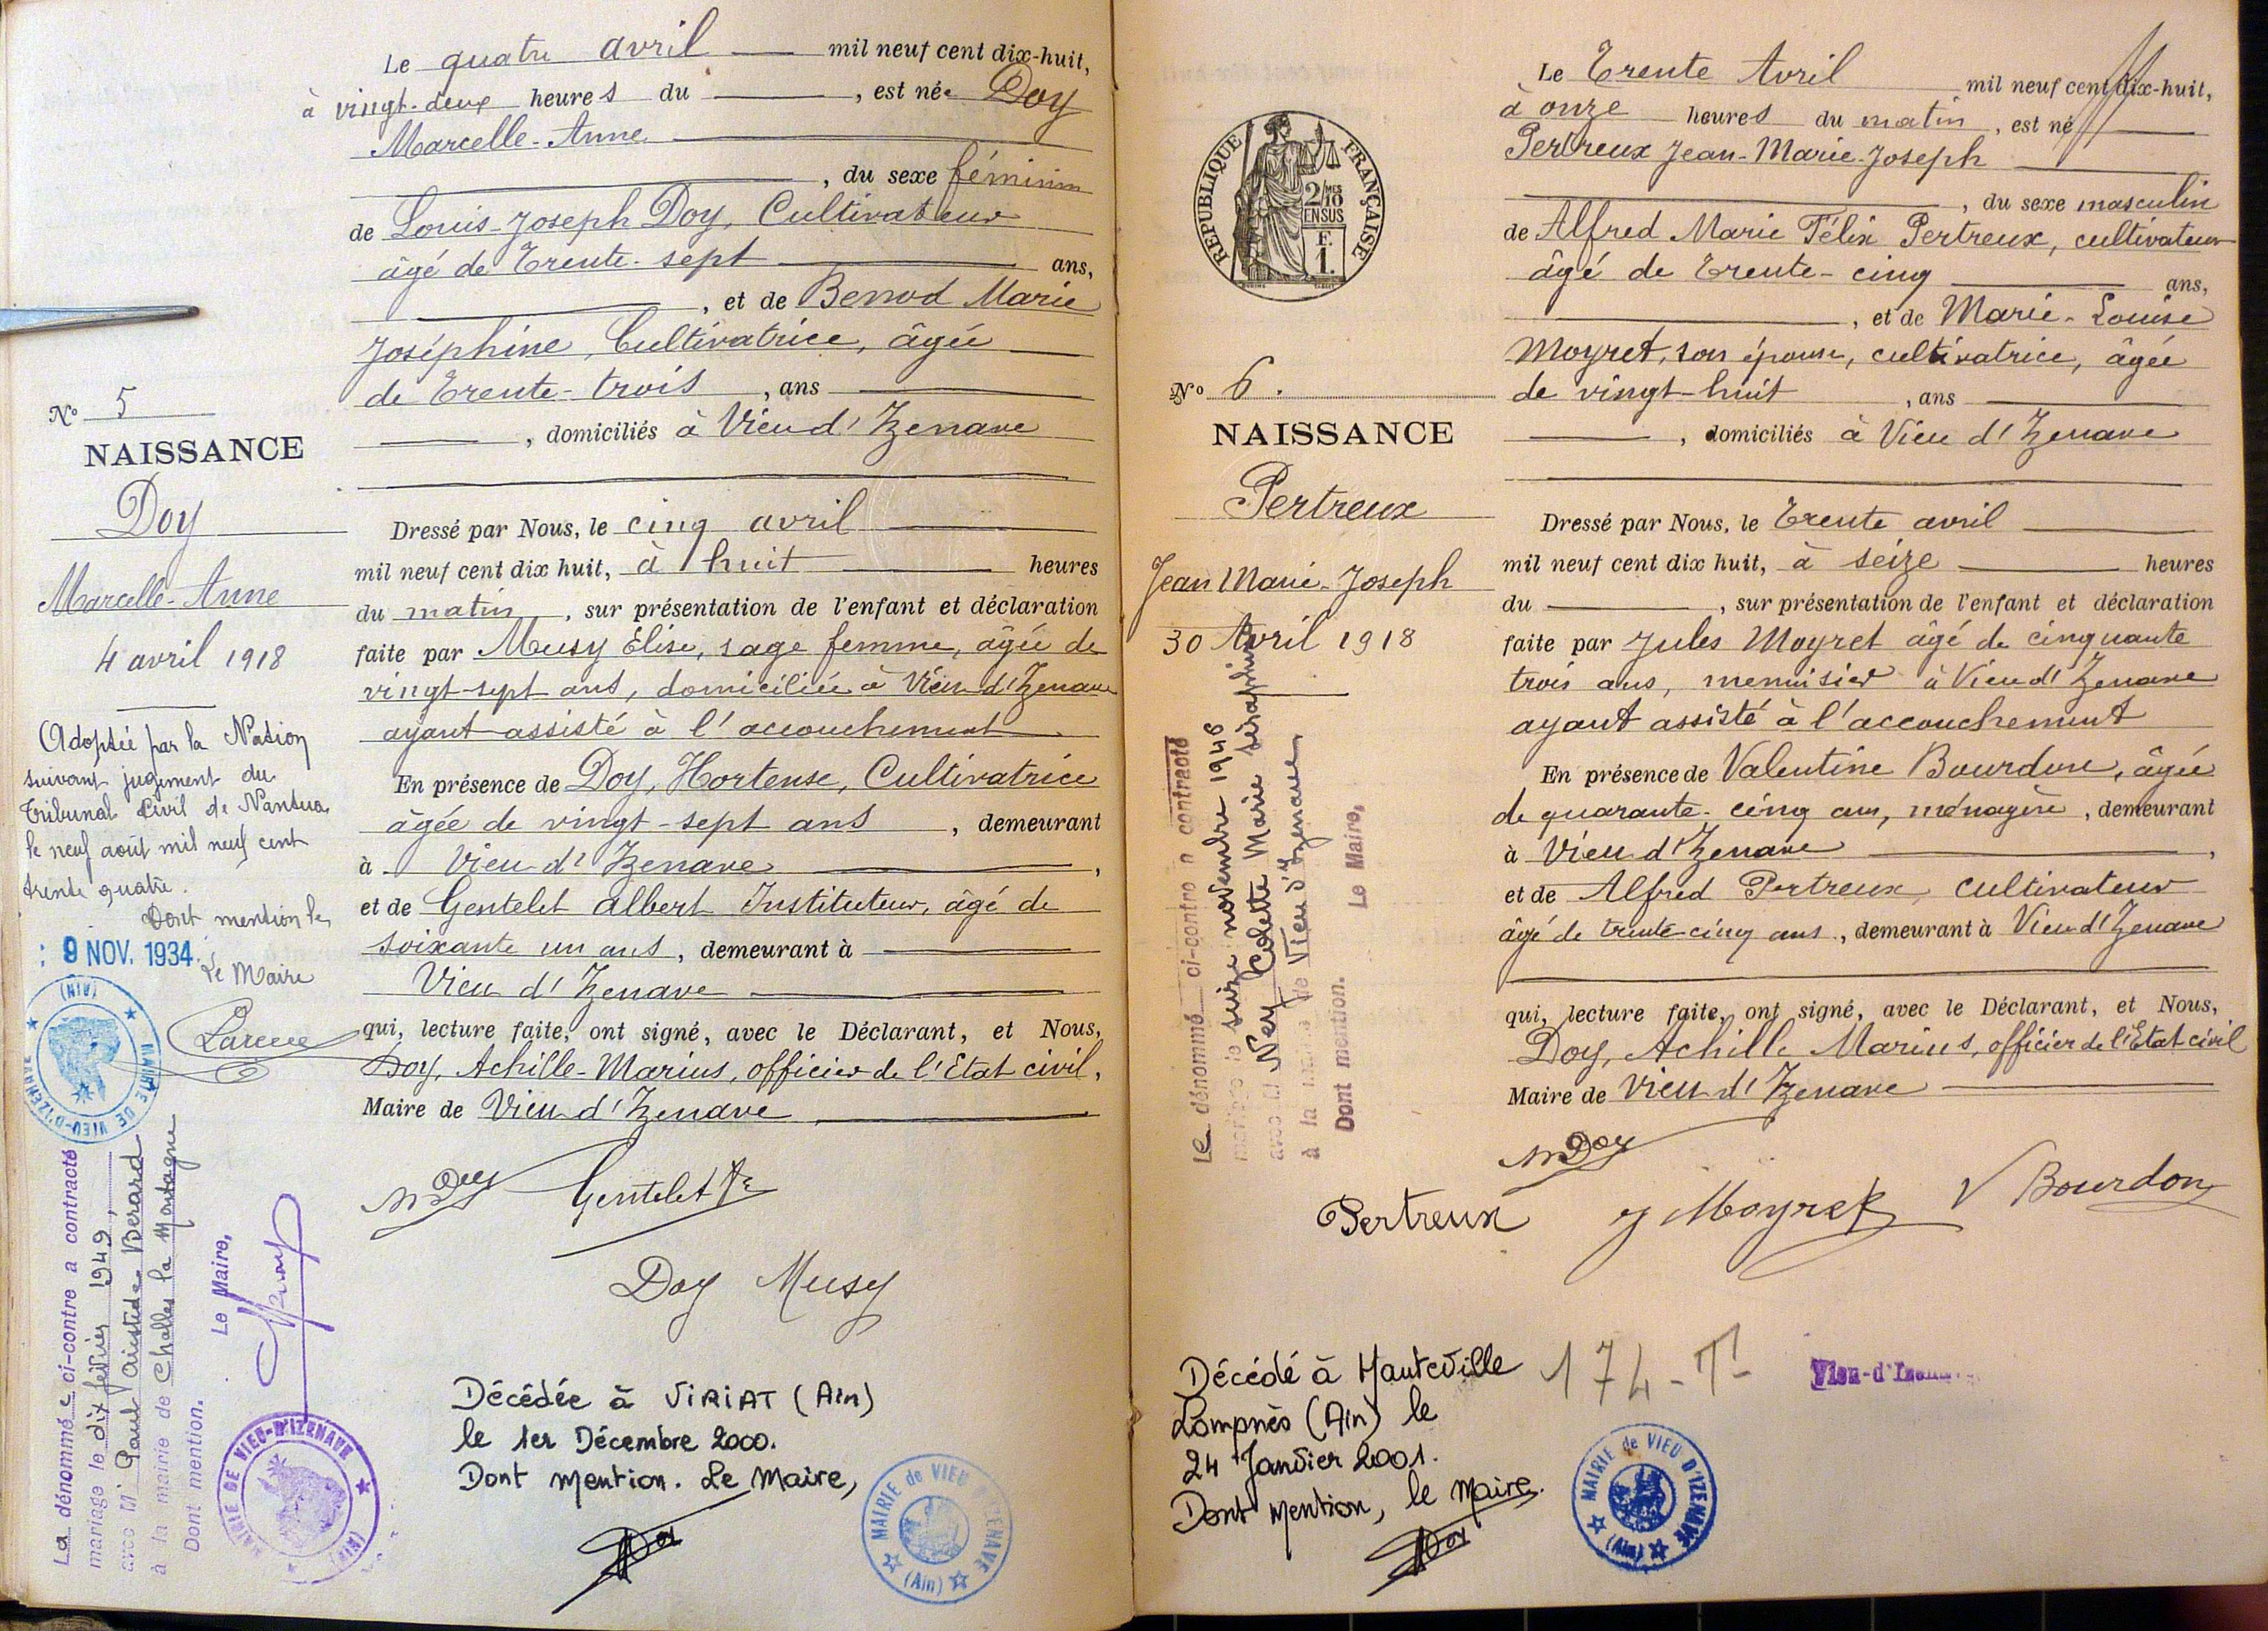 Le quatre avril mil neuf cent dix-huit,
à vingt-deux heures du , est née Doy
Marcelle-Anne
, du sexe féminin
de Louis-Joseph Doy, Cultivateur
âgé de Trente-sept ans,
, et de Benod Marie
Joséphine, Cultivatrice, âgée
de Trente-trois , ans
, domiciliés à Vieu d'Izenave
No 5
NAISSANCE
Doy
Marcelle-Anne
4 avril 1918
Dressé par Nous, le cinq avril
mil neuf cent dix huit, à huit heures
du matin , sur présentation de l'enfant et déclaration
faite par Musy Elise, sage femme, âgée de
vingt-sept ans, domiciliée à Vieu d'Izenave
ayant assisté à l'accouchement
En présence de Doy, Hortense, Cultivatrice
âgée de vingt-sept ans , demeurant
à Vieu d'Izenave ,
et de Gentelet Albert Instituteur, âgé de
soixante un ans , demeurant à
Vieu d'Izenave
qui, lecture faite, ont signé, avec le Déclarant, et Nous,
Doy, Achille-Marius, officier de l'Etat civil,
Maire de Vieu d'Izenave
M Doy Gentelet
Doy Musy
Adoptée par la Nation
suivant jugement du
Tribunal Civil de Nantua
le neuf août mil neuf cent
trente quatre.
Dont mention le
9 NOV. 1934.
Le Maire
MAIRIE DE VIEU-D'IZENAVE (AIN)
La dénommée ci-contre a contracté
mariage le dix février 1949,
avec M. Paul Aristide Berard
à la mairie de Challes la Montagne
Dont mention. Le Maire,
MAIRIE DE VIEU-D'IZENAVE (AIN)
Décédée à VIRIAT (Ain)
le 1er Décembre 2000.
Dont mention. Le Maire,
MAIRIE de VIEU D'IZENAVE
(Ain)
Le Trente Avril mil neuf cent dix-huit,
à onze heures du matin , est né
Pertreux Jean-Marie-Joseph
, du sexe masculin
de Alfred Marie Félix Pertreux, cultivateur
âgé de Trente-cinq ans,
, et de Marie-Louise
Moyret, son épouse, cultivatrice, âgée
de vingt-huit , ans
, domiciliés à Vieu d'Izenave
REPUBLIQUE FRANÇAISE
2/10 MES
EN SUS
F.
1.
No 6.
NAISSANCE
Pertreux
Jean Marie-Joseph
30 Avril 1918
Dressé par Nous, le Trente avril
mil neuf cent dix huit, à seize heures
du , sur présentation de l'enfant et déclaration
faite par Jules Moyret âgé de cinquante
trois ans, menuisier à Vieu d'Izenave
ayant assisté à l'accouchement
En présence de Valentine Bourdon, âgée
de quarante-cinq ans, ménagère , demeurant
à Vieu d'Izenave ,
et de Alfred Pertreux, cultivateur
âgé de trente-cinq ans , demeurant à Vieu d'Izenave
qui, lecture faite, ont signé, avec le Déclarant, et Nous,
Doy, Achille Marius, officier de l'Etat civil
Maire de Vieu d'Izenave
M Doy
Pertreux J Moyret V Bourdon
Le dénommé ci-contre a contracté
mariage le seize novembre 1946
avec M Ney Colette Marie Séraphine
à la mairie de Vieu d'Izenave,
Dont mention. Le Maire,
Décédé à Hauteville
Lompnès (Ain) le
24 Janvier 2001.
Dont mention, le Maire.
174-T
MAIRIE de VIEU D'IZENAVE
(Ain)